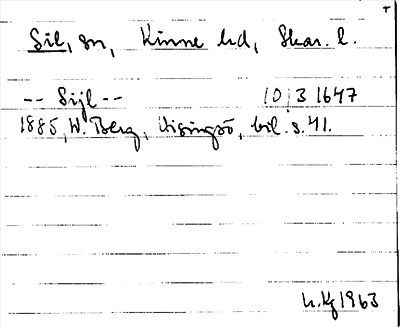 Sil, sn, Kinne hd, Skar. l.
-- Sijl -- 10/3 1647
1885, W. Berg, Visingsö, bil. s. 41.
1963